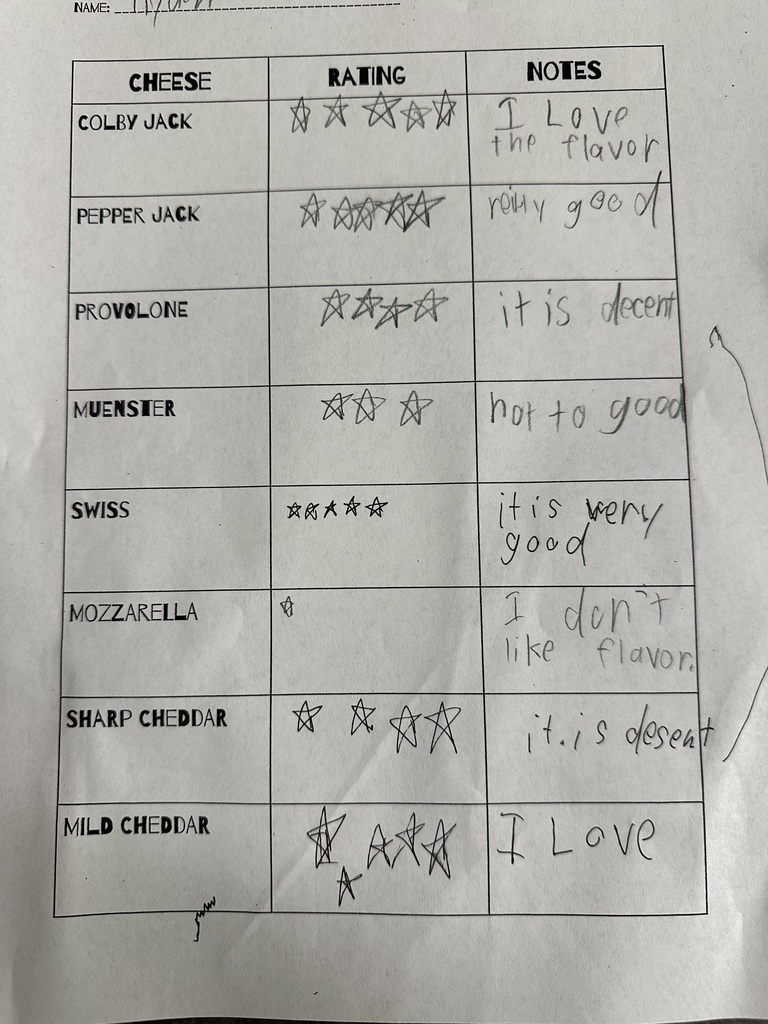 NAME:
CHEESE RATING NOTES
COLBY JACK I Love
the flavor
PEPPER JACK good
PROVOLONE it is decent
MUENSTER not to good
SWISS it is very
good
MOZZARELLA I don't
like flavor.
SHARP CHEDDAR it.is desent
MILD CHEDDAR I Love